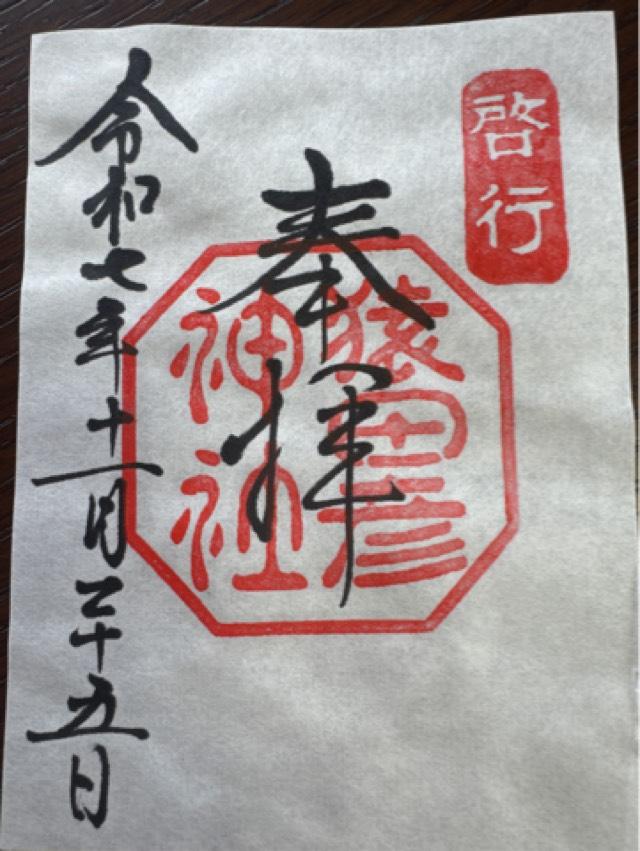 啓行
奉拝
猿田彦
神社
令和七年十一月二十五日